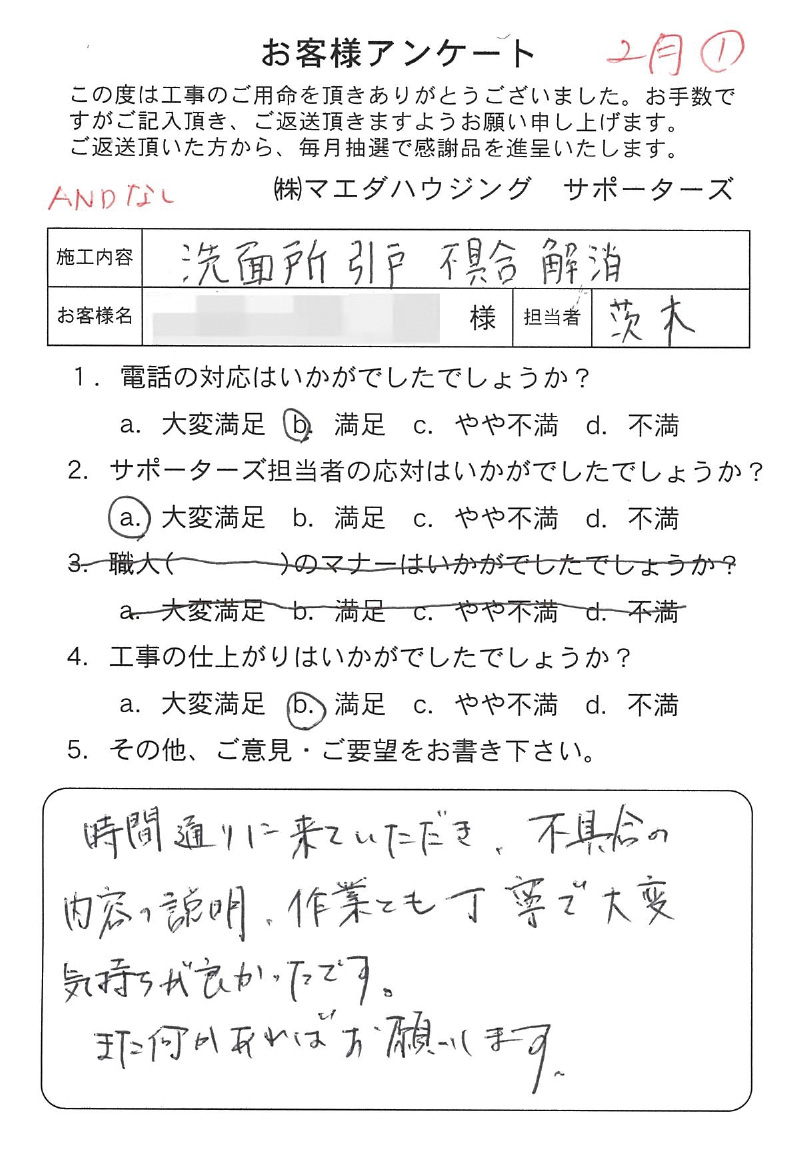 お客様アンケート 2月①
この度は工事のご用命を頂きありがとうございました。お手数で
すがご記入頂き、ご返送頂きますようお願い申し上げます。
ご返送頂いた方から、毎月抽選で感謝品を進呈いたします。
ANDなし ㈱マエダハウジング サポーターズ
施工内容 洗面所引戸 不具合解消
お客様名 様 担当者 茨木
1. 電話の対応はいかがでしたでしょうか？
a. 大変満足 b. 満足 c. やや不満 d. 不満
2. サポーターズ担当者の応対はいかがでしたでしょうか？
a. 大変満足 b. 満足 c. やや不満 d. 不満
3. 職人( )のマナーはいかがでしたでしょうか？
a. 大変満足 b. 満足 c. やや不満 d. 不満
4. 工事の仕上がりはいかがでしたでしょうか？
a. 大変満足 b. 満足 c. やや不満 d. 不満
5. その他、ご意見・ご要望をお書き下さい。
時間通りに来ていただき、不具合の
内容の説明、作業とても丁寧で大変
気持ちが良かったです。
また何かあればお願いします。